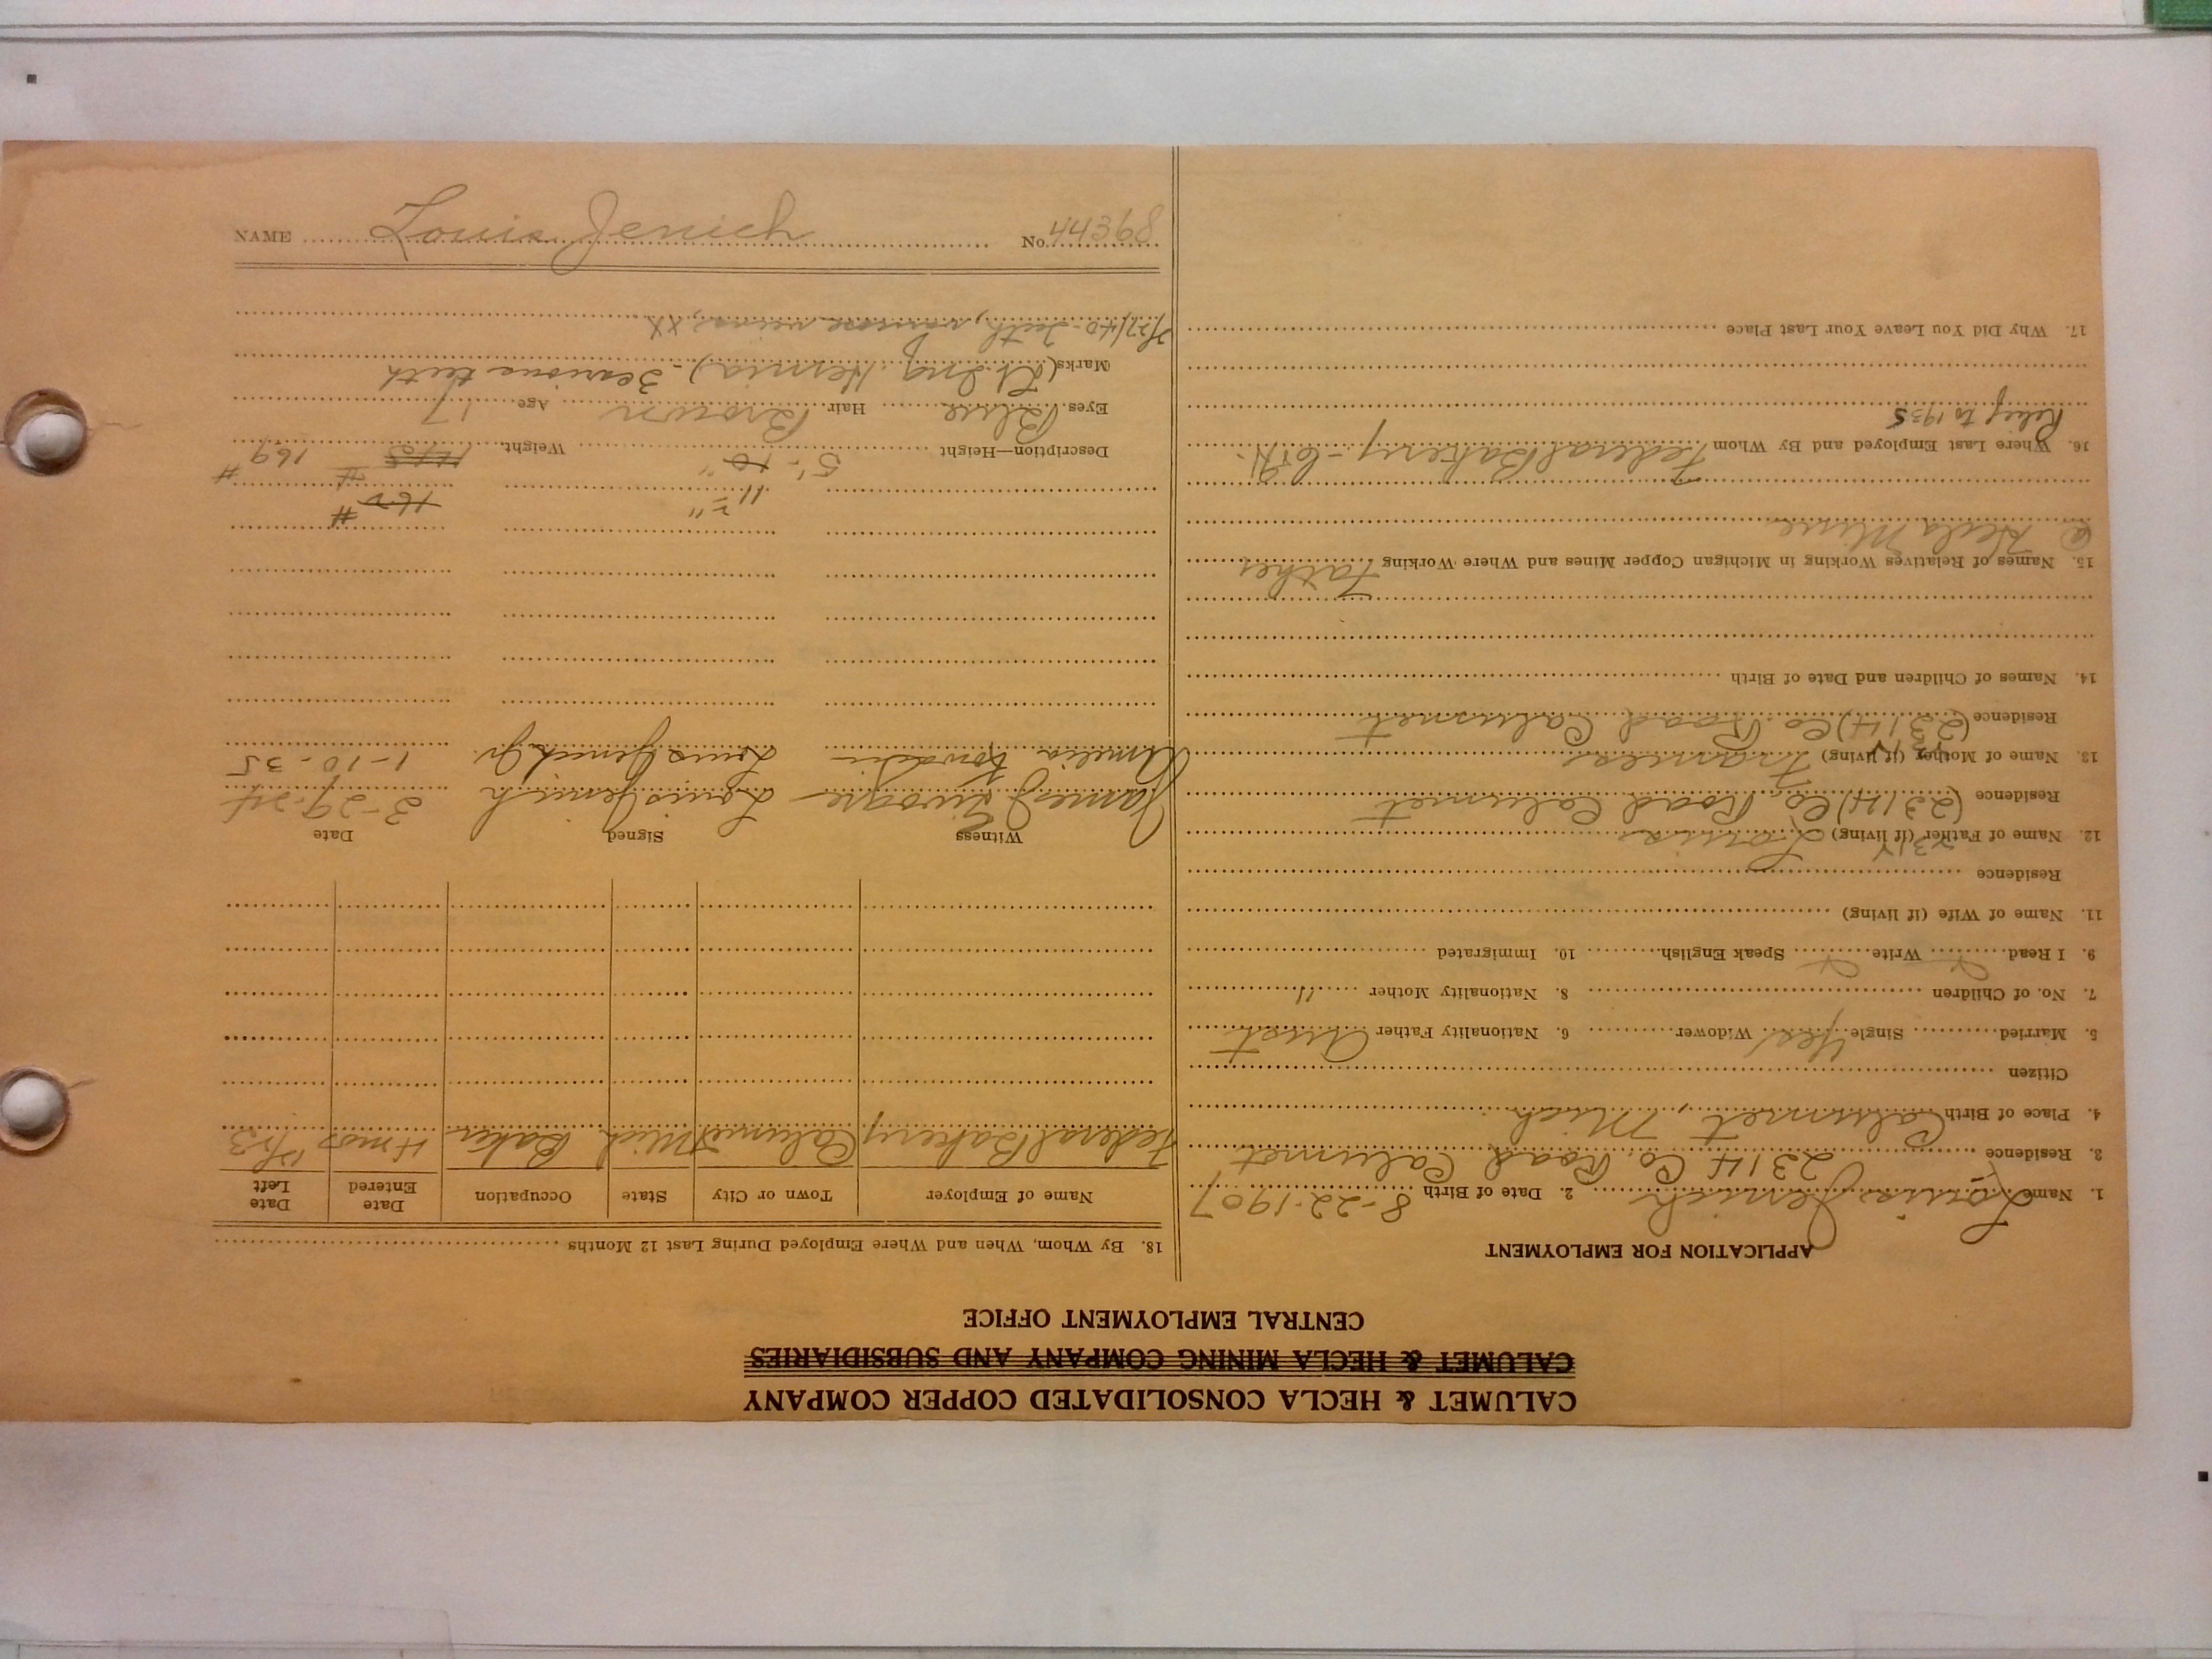 CALUMET & HECLA CONSOLIDATED COPPER COMPANY
CALUMET & HECLA MINING COMPANY AND SUBSIDIARIES
CENTRAL EMPLOYMENT OFFICE
APPLICATION FOR EMPLOYMENT
1. Name Louis Jenich 2. Date of Birth 8-22-1907
3. Residence 2314 Co. Road Calumet
4. Place of Birth Calumet, Mich
Citizen
5. Married Single Yes Widower 6. Nationality Father Aust
7. No. of Children 8. Nationality Mother "
9. I Read Write Speak English 10. Immigrated
11. Name of Wife (if living)
Residence
12. Name of Father (if living) Louis
Residence (2314) Co. Road Calumet
13. Name of Mother (if living) Frances
Residence (2314) Co. Road Calumet
14. Names of Children and Date of Birth
15. Names of Relatives Working in Michigan Copper Mines and Where Working Father
@ Hecla Mine
16. Where Last Employed and By Whom Federal Bakery
Relief to 1935
17. Why Did You Leave Your Last Place
18. By Whom, When and Where Employed During Last 12 Months
Name of Employer Town or City State Occupation Date Entered Date Left
Federal Bakery Calumet Mich Baker 4 mos
Witness Signed Date
James Louis Jenich 3-29-24
Amelia Louis Jenich Jr. 1-10-35
162 #
11 2/2"
Description—Height 5'-10" Weight 145 # 169 #
Eyes Blue Hair Brown Age 17
Marks (Lt. Ing. Hernia)- teeth
7/27/40 - Teeth, varicose veins, XX
NAME Louis Jenich No. 44368